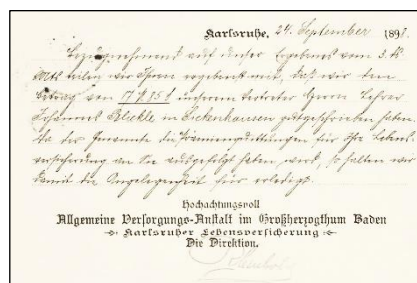 Karlsruhe, 24. September 1898
Bezugnehmend auf unser Ergebenes vom 3. ds.
Mts. teilen wir Ihnen ergebenst mit, daß wir den
Betrag von M 7.85 unserem Vertreter Herrn Lehrer
Johannes Blickle in Dickenhausen gutgeschrieben haben.
Da der Genannte die Prämienquittungen für Ihre Lebens-
versicherung an Sie ausgefolgt haben wird, so halten wir
damit die Angelegenheit für erledigt.
Hochachtungsvoll
Allgemeine Versorgungs-Anstalt im Großherzogthum Baden
Karlsruher Lebensversicherung
Die Direktion.